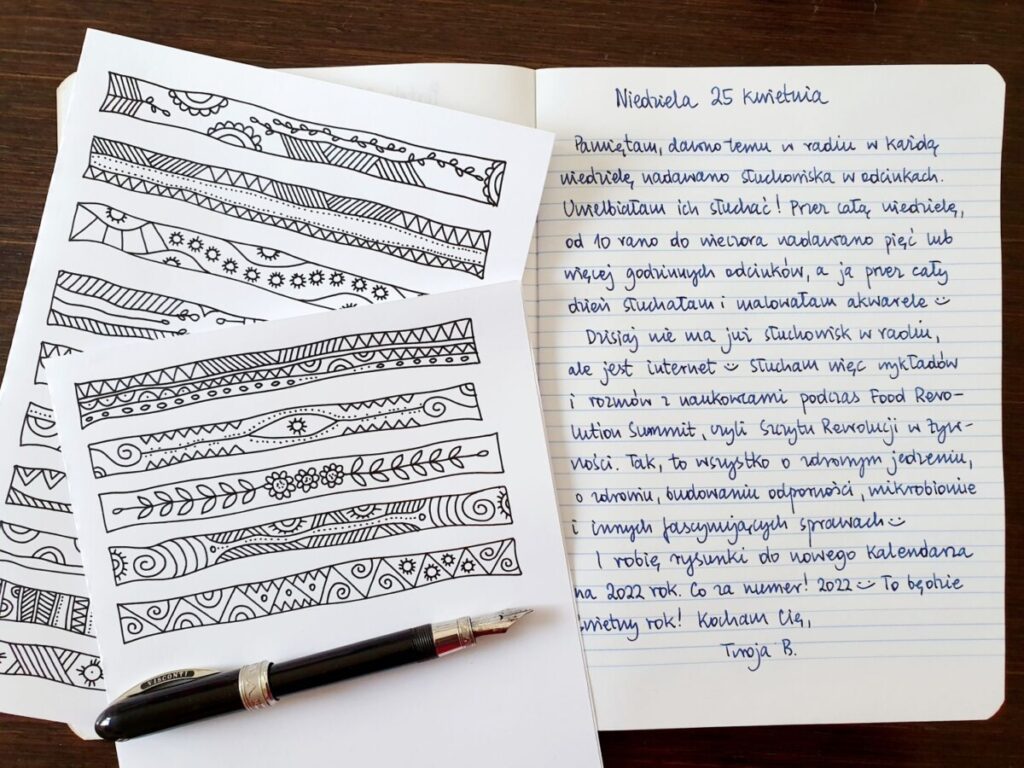 Niedziela 25 kwietnia
Pamiętam, dawno temu w radiu w każdą
niedzielę nadawano słuchowiska w odcinkach.
Uwielbiałam ich słuchać! Przez całą niedzielę,
od 10 rano do wieczora nadawano pięć lub
więcej godzinnych odcinków, a ja przez cały
dzień słuchałam i malowałam akwarele
Dzisiaj nie ma już słuchowisk w radiu,
ale jest internet słucham więc wykładów
i rozmów z naukowcami podczas Food Revo-
lution Summit, czyli Szczytu Rewolucji w Żyw-
ności. Tak, to wszystko o zdrowym jedzeniu,
o zdrowiu, budowaniu odporności, mikrobiomie
i innych fascynujących sprawach
I robię rysunki do nowego Kalendarza
na 2022 rok. Co za numer! 2022 To będzie
świetny rok! Kocham Cię,
Twoja B.
VISCONTI